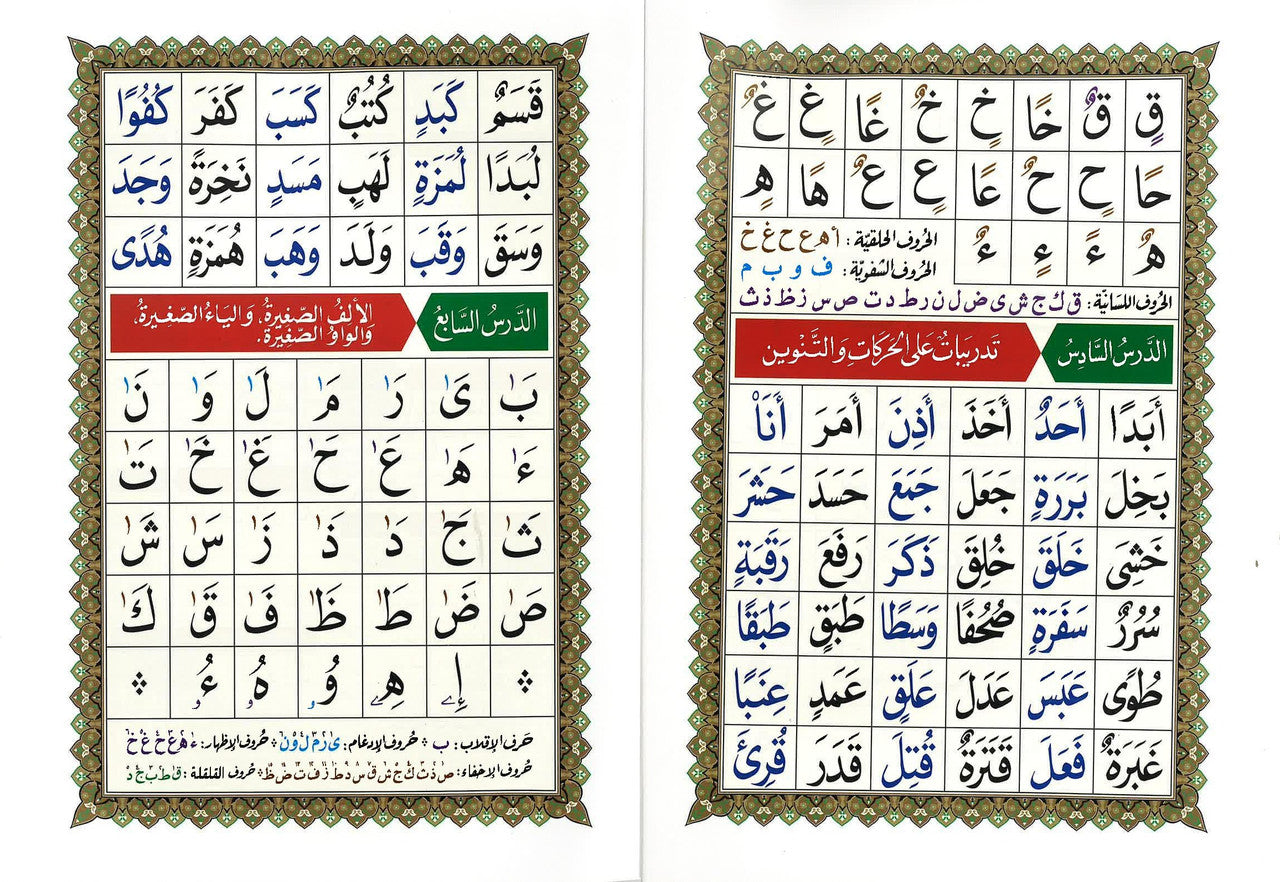 قٍ قٌ خًا خٍ خٌ غًا غٍ غٌ
حًا حٍ حٌ عًا عٍ عٌ هًا هٍ
هٌ ءً ءٍ ءٌ
الحروف الحلقيّة: أ هـ ع ح غ خ
الحروف الشفويّة: ف و ب م
الحروف اللسانيّة: ق ك ج ش ى ض ل ن ر ط د ت ص س ز ظ ذ ث
الدَّرسُ السَّادِسُ تَدرِيبَاتٌ عَلَى الحَرَكَاتِ وَالتَّنْوِينِ
أَبَدًا أَحَدٌ أَخَذَ أَذِنَ أَمَرَ أَنَا۠
بَخِلَ بَرَرَةٍ جَعَلَ جَمَعَ حَسَدَ حَشَرَ
خَشِىَ خَلَقَ خُلِقَ ذَكَرَ رَفَعَ رَقَبَةٍ
سُرُرٌ سَفَرَةٍ صُحُفًا وَسَطًا طَبَقٍ طَبَقًا
طُوًى عَبَسَ عَدَلَ عَلَقٍ عَمَدٍ عِنَبًا
غَبَرَةٌ فَعَلَ قَتَرَةٌ قُتِلَ قَدَرَ قُرِئَ
قَسَمٌ كَبَدٍ كُتُبٌ كَسَبَ كَفَرَ كُفُوًا
لُبَدًا لُمَزَةٍ لَهَبٍ مَسَدٍ نَخِرَةً وَجَدَ
وَسَقَ وَقَبَ وَلَدَ وَهَبَ هُمَزَةٍ هُدًى
الدَّرسُ السَّابِعُ الألِفُ الصَّغِيرَةُ، وَاليَاءُ الصَّغِيرَةُ،
وَالوَاوُ الصَّغِيرَةُ.
بَٰ ىَٰ رَٰ مَٰ لَٰ وَٰ نَٰ
ءَٰ هَٰ عَٰ حَٰ غَٰ خَٰ تَٰ
ثَٰ جَٰ دَٰ ذَٰ زَٰ سَٰ شَٰ
صَٰ ضَٰ طَٰ ظَٰ فَٰ قَٰ كَٰ
إِۦ هِۦ وُۥ هُۥ ءُۥ
حَرف الإقلاب: ب حُروف الإدغام: ى ر م ل و ن حُروف الإظهار: ء هـ ع ح غ خ
حُروف الإخفاء: ص ذ ث ك ج ش ق س د ط ز ف ت ض ظ حُروف القلقلة: ق ط ب ج د